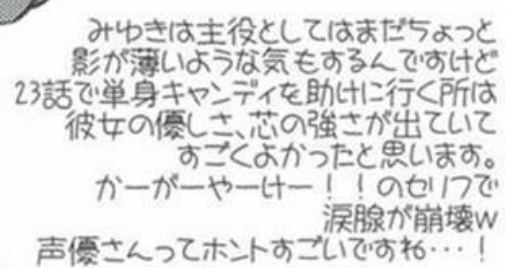 みゆきは主役としてはまだちょっと
影が薄いような気もするんですけど
23話で単身キャンディを助けに行く所は
彼女の優しさ、芯の強さが出ていて
すごくよかったと思います。
かーがーやーけー!!のセリフで
涙腺が崩壊w
声優さんってホントすごいですね…!